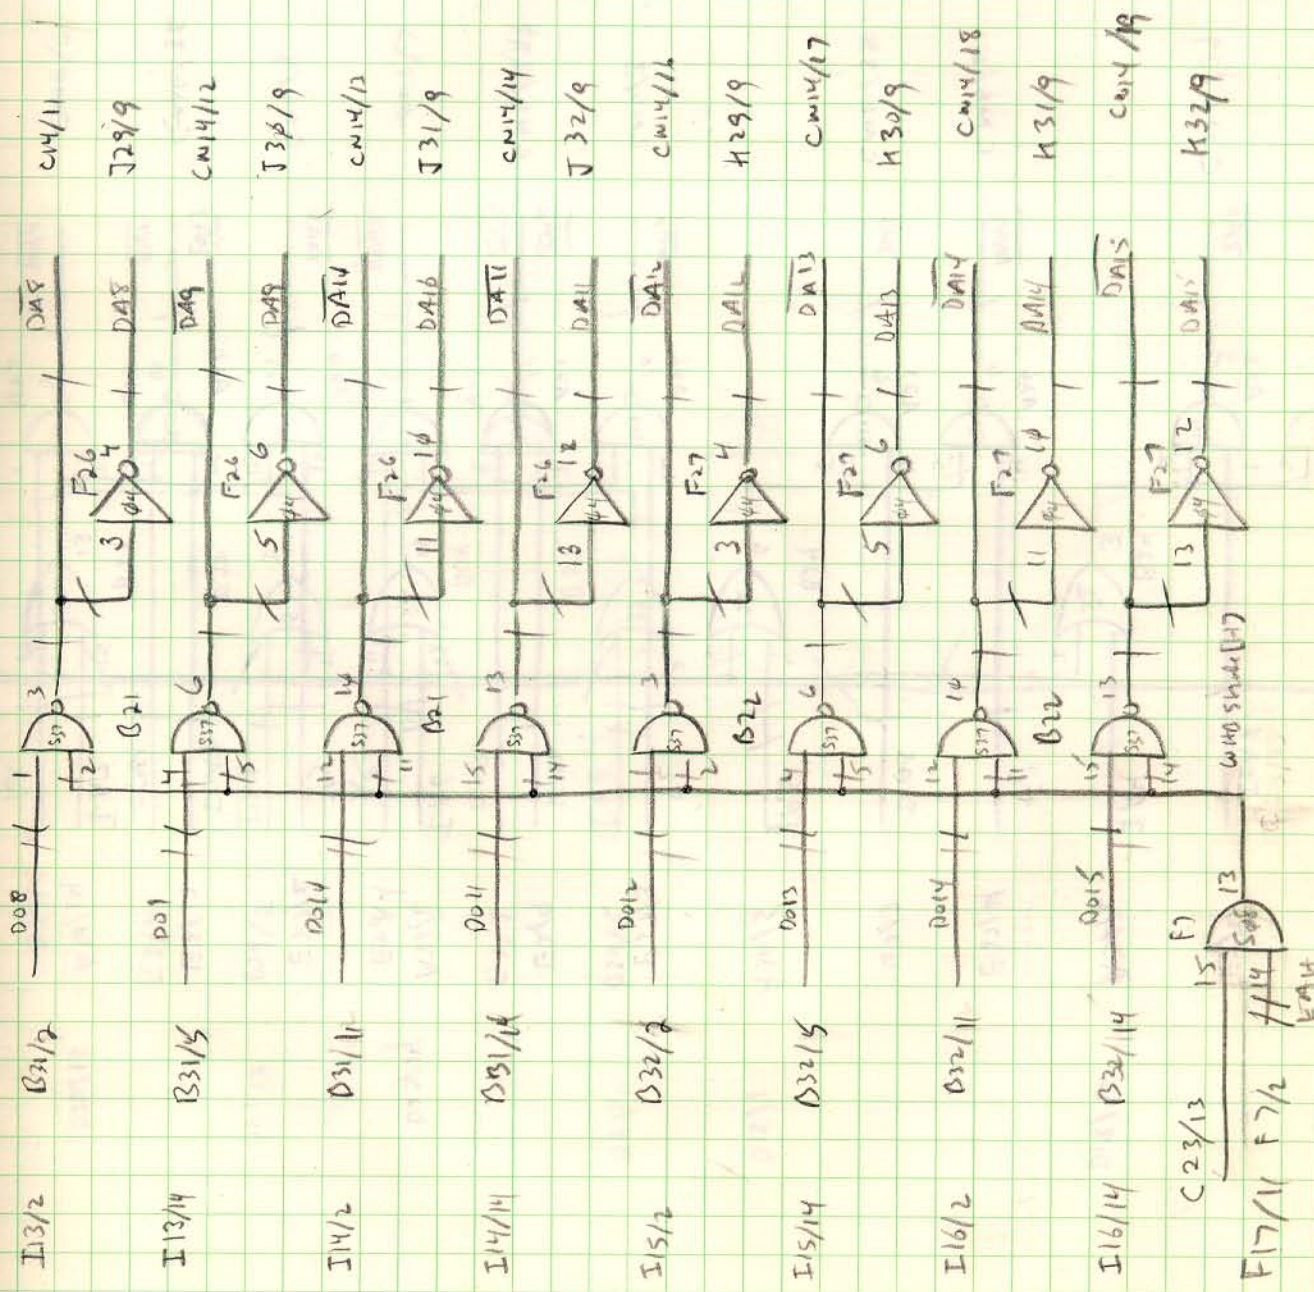 I13/2 B31/2 DO8 1 2 S37 3 B21 DA8 C14/11
3 F26 φ4 4 DA8 J29/9
I13/14 B31/5 DO9 4 5 S37 6 DA9 CN14/12
5 F26 φ4 6 DA9 J3φ/9
I14/2 B31/11 DO1φ 12 11 S37 1φ B21 DA1φ CN14/13
11 F26 φ4 1φ DA1φ J31/9
I14/14 B31/14 DO11 15 14 S37 13 DA11 CN14/14
13 F26 φ4 12 DA11 J32/9
I15/2 B32/2 DO12 1 2 S37 3 B22 DA12 CN14/16
3 F27 φ4 4 DA12 H29/9
I15/14 B32/5 DO13 4 5 S37 6 DA13 CN14/17
5 F27 φ4 6 DA13 H30/9
I16/2 B32/11 DO14 12 11 S37 1φ B22 DA14 CN14/18
11 F27 φ4 1φ DA14 H31/9
I16/14 B32/14 DO15 15 14 S37 13 DA15 CN14/19
13 F27 φ4 12 DA15 H32/9
C23/13 15 F7 Sφ8 13
F17/11 F7/2 14